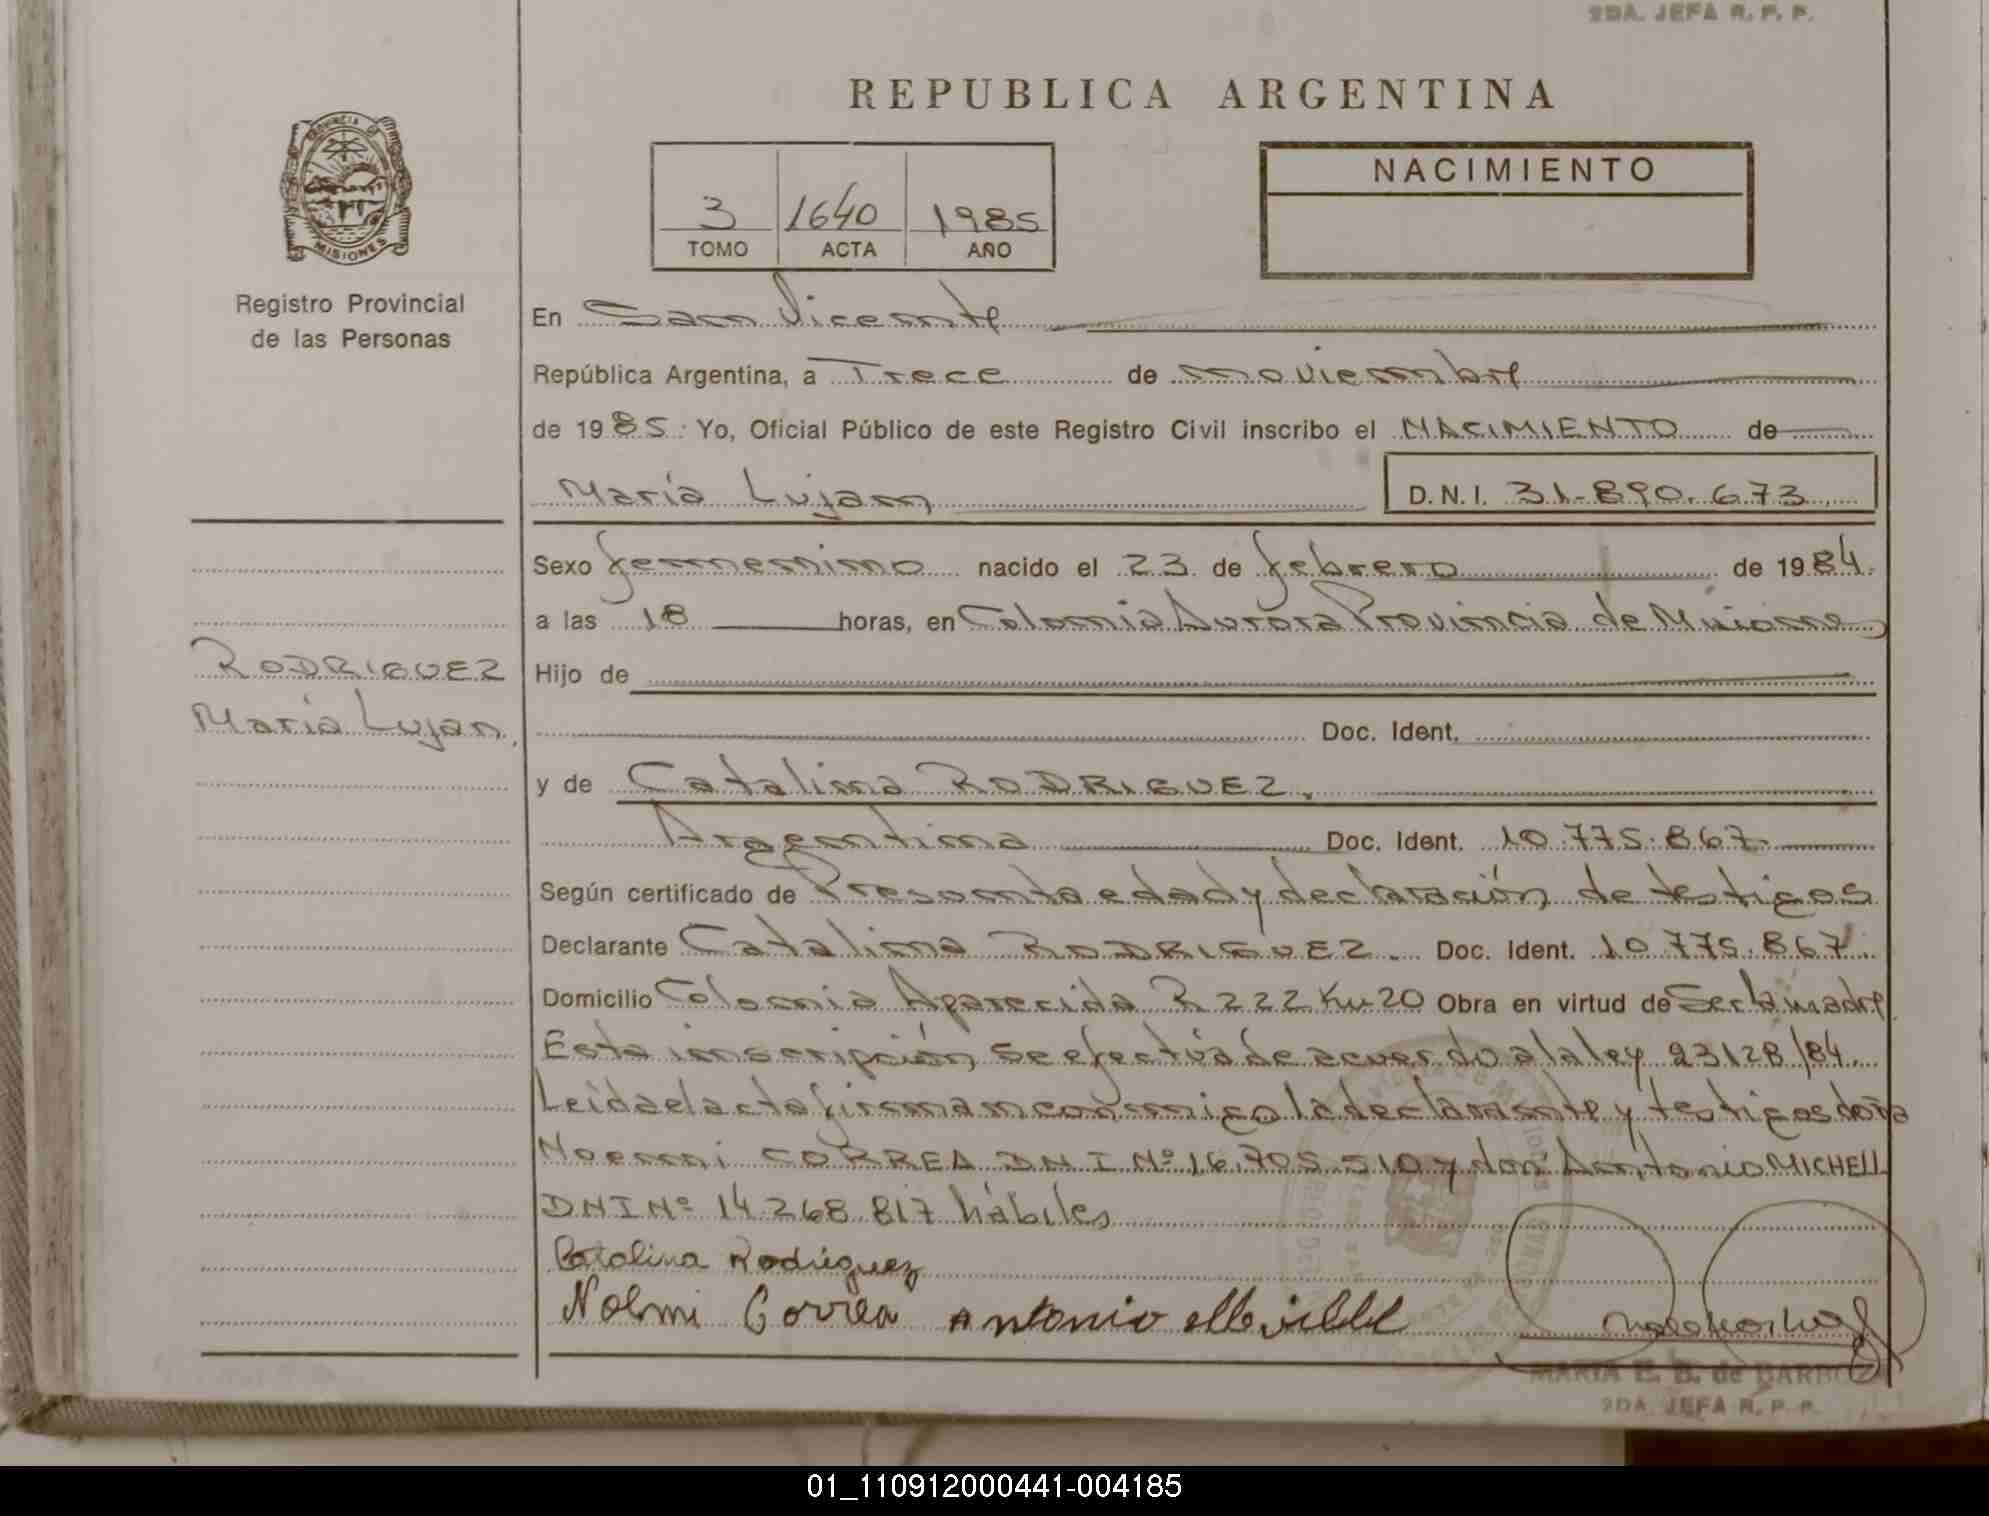 2DA. JEFA R. P. P.
REPUBLICA ARGENTINA
PROVINCIA DE
MISIONES
Registro Provincial
de las Personas
3 1640 1985
TOMO ACTA AÑO
NACIMIENTO
En San Vicente
República Argentina, a Trece de noviembre
de 1985. Yo, Oficial Público de este Registro Civil inscribo el NACIMIENTO de
María Lujan D.N.I. 31.890.673
Sexo femenino nacido el 23 de febrero de 1984.
a las 18 horas, en Colonia Aurora Provincia de Misiones
RODRIGUEZ
María Lujan.
Hijo de
Doc. Ident.
y de Catalina RODRIGUEZ.
Argentina Doc. Ident. 10.775.867
Según certificado de Presunta edad y declaración de testigos
Declarante Catalina RODRIGUEZ. Doc. Ident. 10.775.867.
Domicilio Colonia Aparecida R 222 Km 20 Obra en virtud de Ser la madre
Esta inscripción se efectúa de acuerdo a la ley 23128/84.
Leida el acta firman conmigo la declarante y testigos doña
Noemi CORREA DNI Nº 16.705.510 y don Antonio MICHELL
DNI Nº 14.268.817 hábiles
Catalina Rodríguez
Noemi Correa Antonio
MARIA E. B. de BARBOZA
2DA. JEFA R. P. P.
01_110912000441-004185